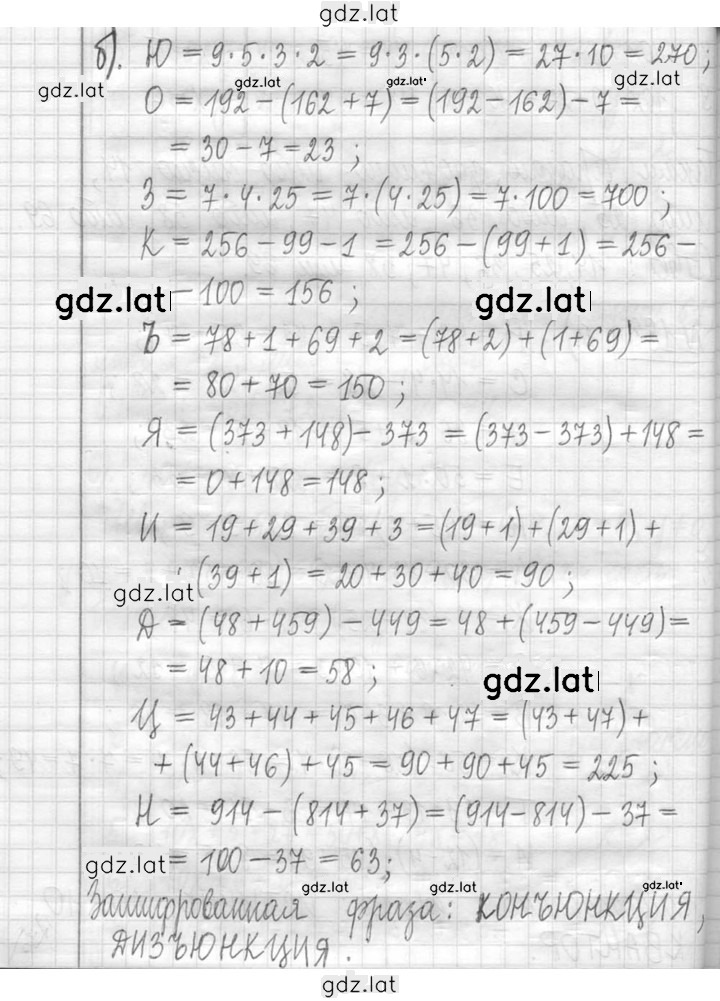 gdz.lat
б). Ю = 9·5·3·2 = 9·3·(5·2) = 27·10 = 270;
gdz.lat gdz.lat gdz.lat gdz.lat
О = 192 - (162 + 7) = (192 - 162) - 7 =
= 30 - 7 = 23 ;
З = 7·4·25 = 7·(4·25) = 7·100 = 700 ;
К = 256 - 99 - 1 = 256 - (99 + 1) = 256 -
gdz.lat - 100 = 156 ; gdz.lat
Ъ = 78 + 1 + 69 + 2 = (78 + 2) + (1 + 69) =
= 80 + 70 = 150 ;
Я = (373 + 148) - 373 = (373 - 373) + 148 =
= 0 + 148 = 148 ;
И = 19 + 29 + 39 + 3 = (19 + 1) + (29 + 1) +
(39 + 1) = 20 + 30 + 40 = 90 ;
gdz.lat
Д = (48 + 459) - 449 = 48 + (459 - 449) =
= 48 + 10 = 58 ; gdz.lat
Ц = 43 + 44 + 45 + 46 + 47 = (43 + 47) +
+ (44 + 46) + 45 = 90 + 90 + 45 = 225 ;
Н = 914 - (814 + 37) = (914 - 814) - 37 =
gdz.lat = 100 - 37 = 63;
gdz.lat gdz.lat gdz.lat
Зашифрованная фраза: КОНЪЮНКЦИЯ,
ДИЗЪЮНКЦИЯ.
gdz.lat